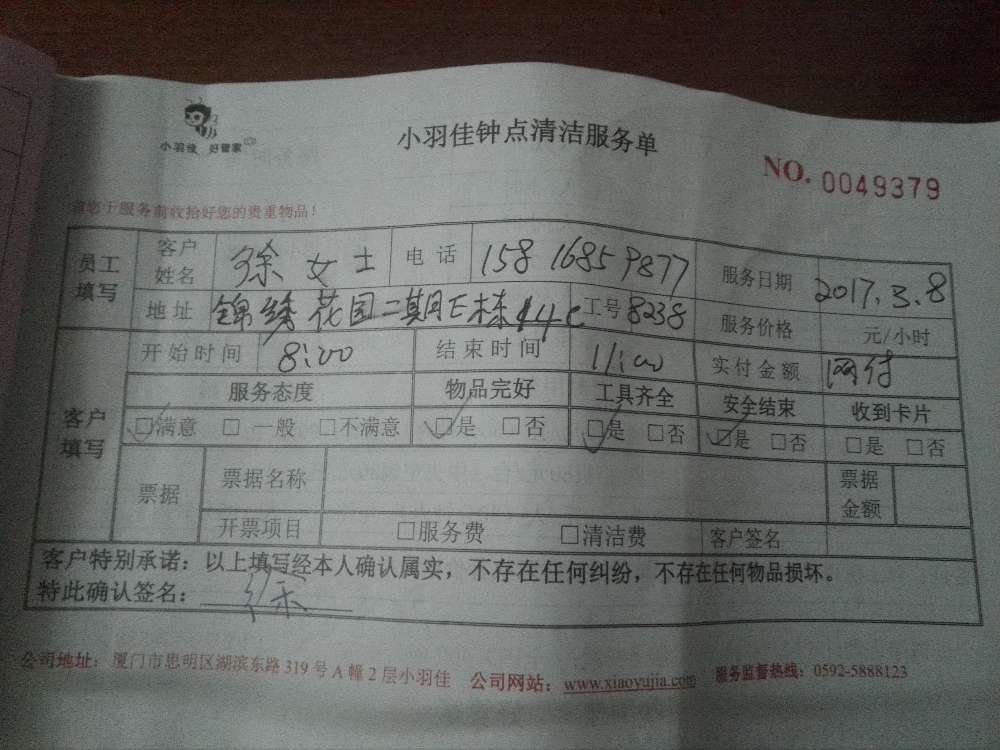 小羽佳 好管家
小羽佳钟点清洁服务单
NO. 0049379
请您于服务前收拾好您的贵重物品！
员工填写 客户姓名 徐女士 电话 158 1685 9877 服务日期 2017.3.8
地址 锦绣花园二期E栋14C 工号 8238 服务价格 元/小时
开始时间 8:00 结束时间 11:00 实付金额 网付
客户填写 服务态度 物品完好 工具齐全 安全结束 收到卡片
□满意 □一般 □不满意 □是 □否 □是 □否 □是 □否 □是 □否
票据 票据名称 票据金额
开票项目 □服务费 □清洁费 客户签名
客户特别承诺：以上填写经本人确认属实，不存在任何纠纷，不存在任何物品损坏。
特此确认签名： 徐
公司地址：厦门市思明区湖滨东路319号A幢2层小羽佳 公司网站：www.xiaoyujia.com 服务监督热线：0592-5888123